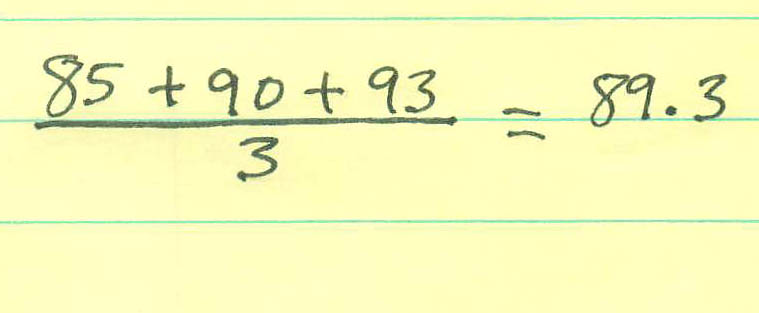 85 + 90 + 93 = 89.3
3